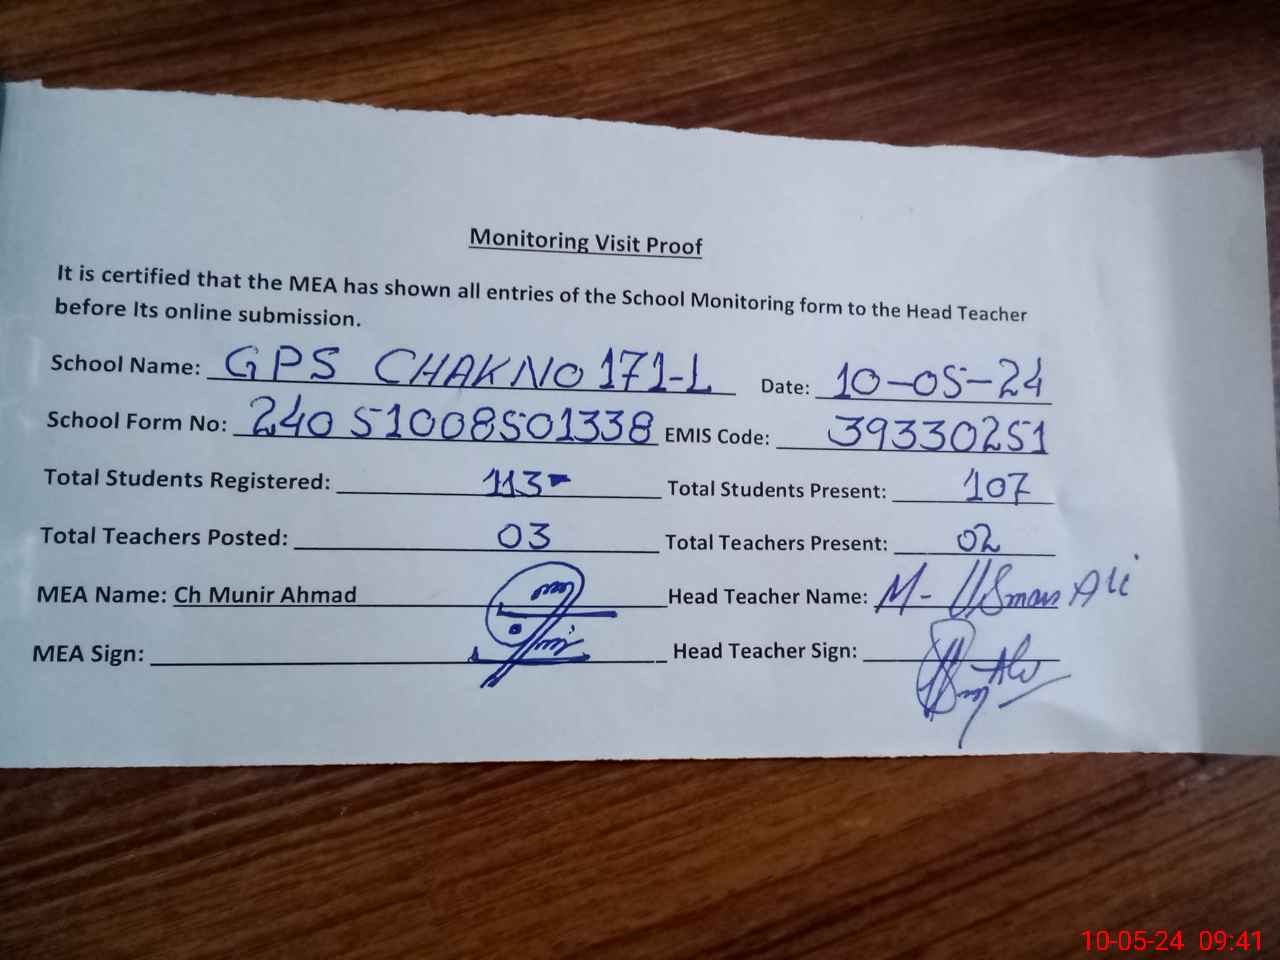 Monitoring Visit Proof
It is certified that the MEA has shown all entries of the School Monitoring form to the Head Teacher
before Its online submission.
School Name: GPS CHAK NO 171-L Date: 10-05-24
School Form No: 24051008501338 EMIS Code: 39330251
Total Students Registered: 113 Total Students Present: 107
Total Teachers Posted: 03 Total Teachers Present: 02
MEA Name: Ch Munir Ahmad Head Teacher Name: M- USman Ali
MEA Sign: Head Teacher Sign:
10-05-24 09:41